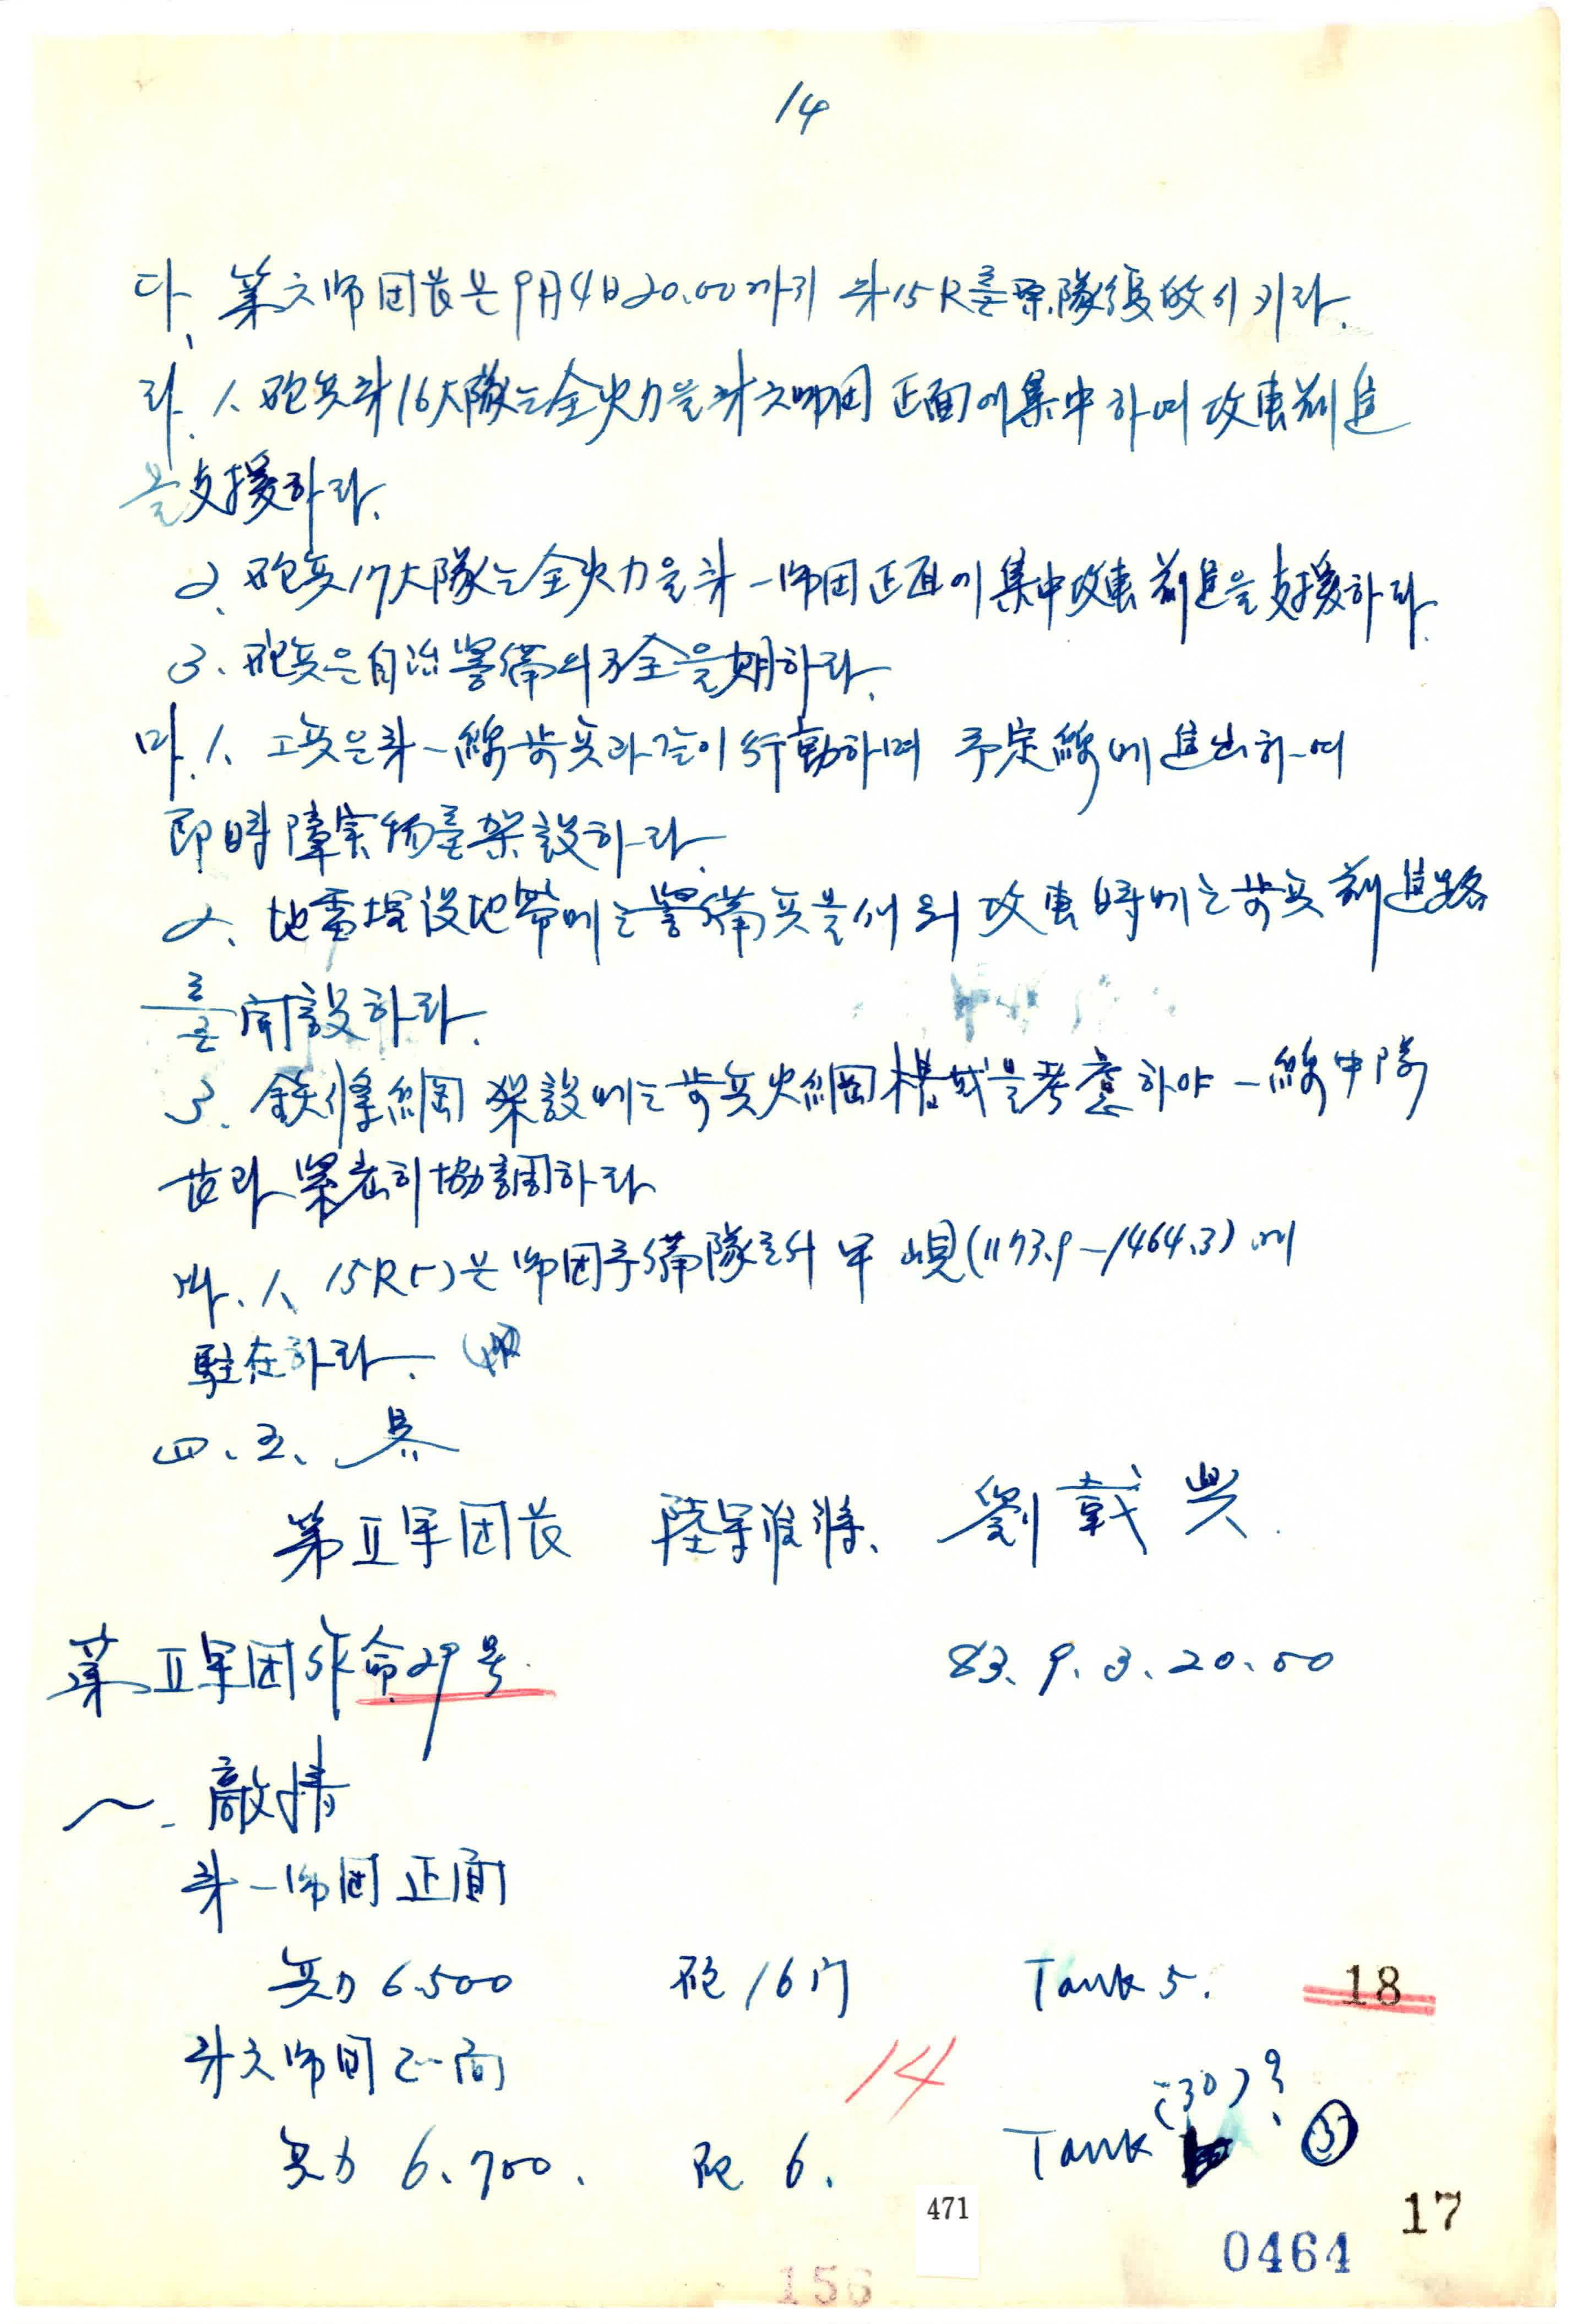 14
다. 第六師団長은 9月4日20.00까지 第15R를 原隊復皈시키라.
라. 1. 砲兵第16大隊는 全火力을 第六師団 正面에 集中하며 攻擊前進
을 支援하라.
2. 砲兵17大隊는 全火力을 第一師団正面에 集中攻擊前進을 支援하라.
3. 砲兵은 自治警備의 万全을 期하라.
마. 1. 工兵은 第一線步兵과 같이 行動하며 予定線에 進出하여
即時障害物를 架設하라.
2. 地雷埋設地帶에는 警備兵을 세워 攻擊時에는 步兵前進路
를 開設하라.
3. 鉄條網 架設에는 步兵火網構成을 考慮하야 一線中隊
長과 緊密히 協調하라
바. 1. 15R(-)는 師団予備隊로서 軍 峴(1173.9-1464.3)에
駐在하라.
四. 五. 畧
第Ⅱ軍団長 陸軍准將. 劉載興
第Ⅱ軍団作命29号. 83. 9. 3. 20.00
一. 敵情
第一師団 正面
兵力 6.500 砲 16门 Tank 5. 18
第六師団 正面
14
兵力 6.700. 砲 6. Tank (30)? ⑤
471
17
0464
156